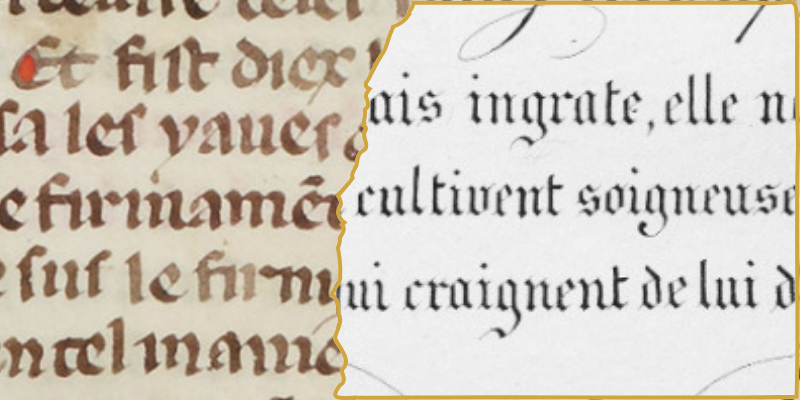 Et fist diex
sa les yaues
e firmamē
e sus le firm
n tel manie
ais ingrate, elle n
cultivent soigneuse
ui craignent de lui d